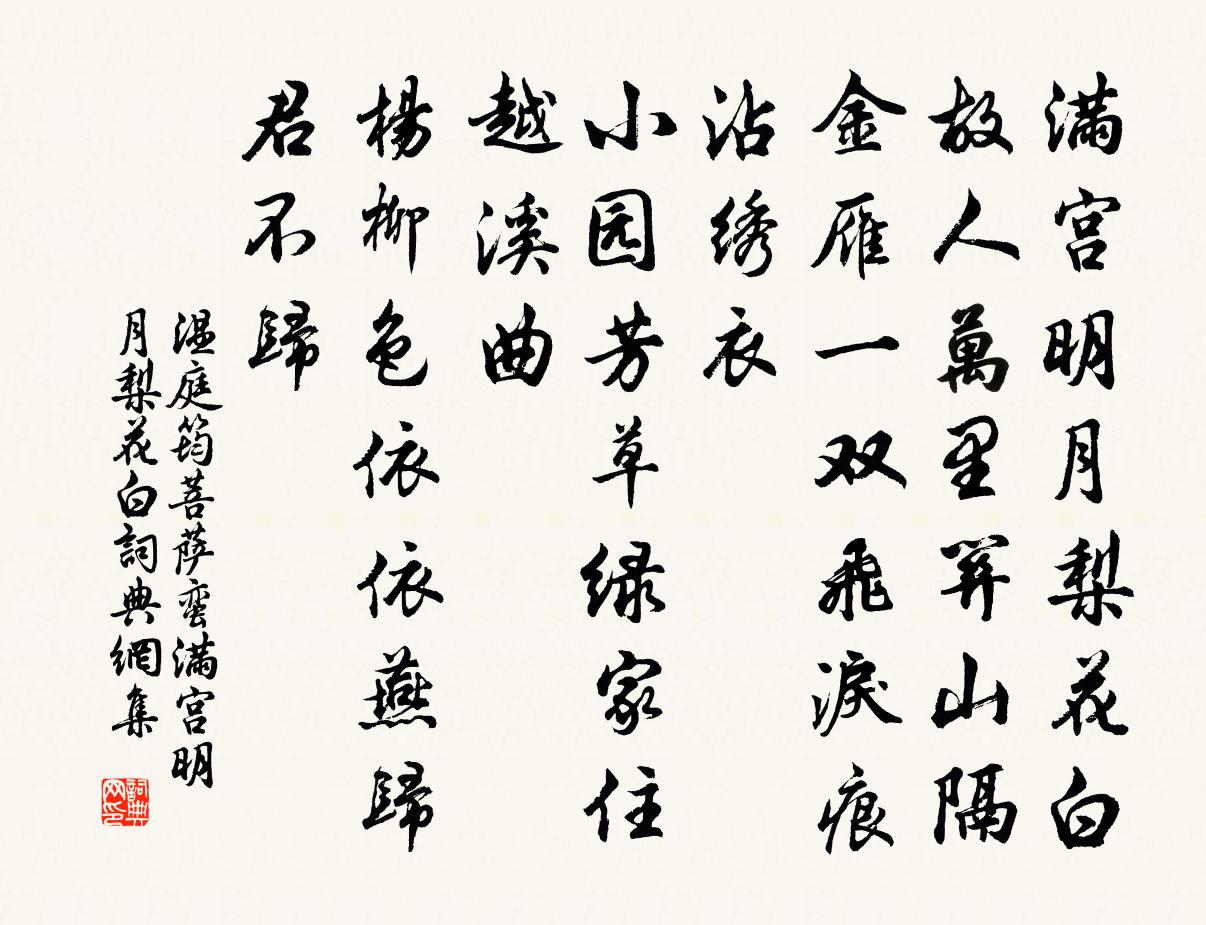 满宫明月梨花白
故人萬里関山隔
金雁一双飛淚痕
沾绣衣
小园芳草绿家住
越溪曲
楊柳色依依燕歸
君不歸
温庭筠菩萨蛮满宫明
月梨花白詞典網集
詞典
网印